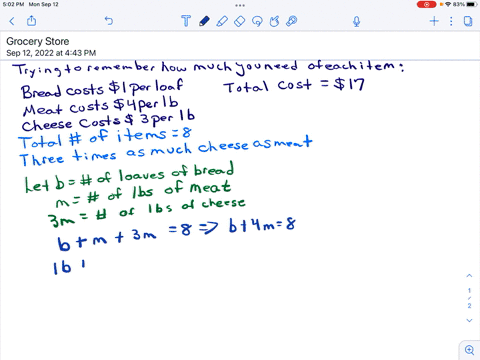 5:02 PM Mon Sep 12
83%
Grocery Store
Sep 12, 2022 at 4:43 PM
Trying to remember how much you need of each item:
Bread costs $1 per loaf Total cost = $17
Meat costs $4 per lb
Cheese costs $3 per lb
Total # of items = 8
Three times as much cheese as meat
Let b = # of loaves of bread
m = # of lbs of meat
3m = # of lbs of cheese
b + m + 3m = 8 => b + 4m = 8
1b
1
/
2